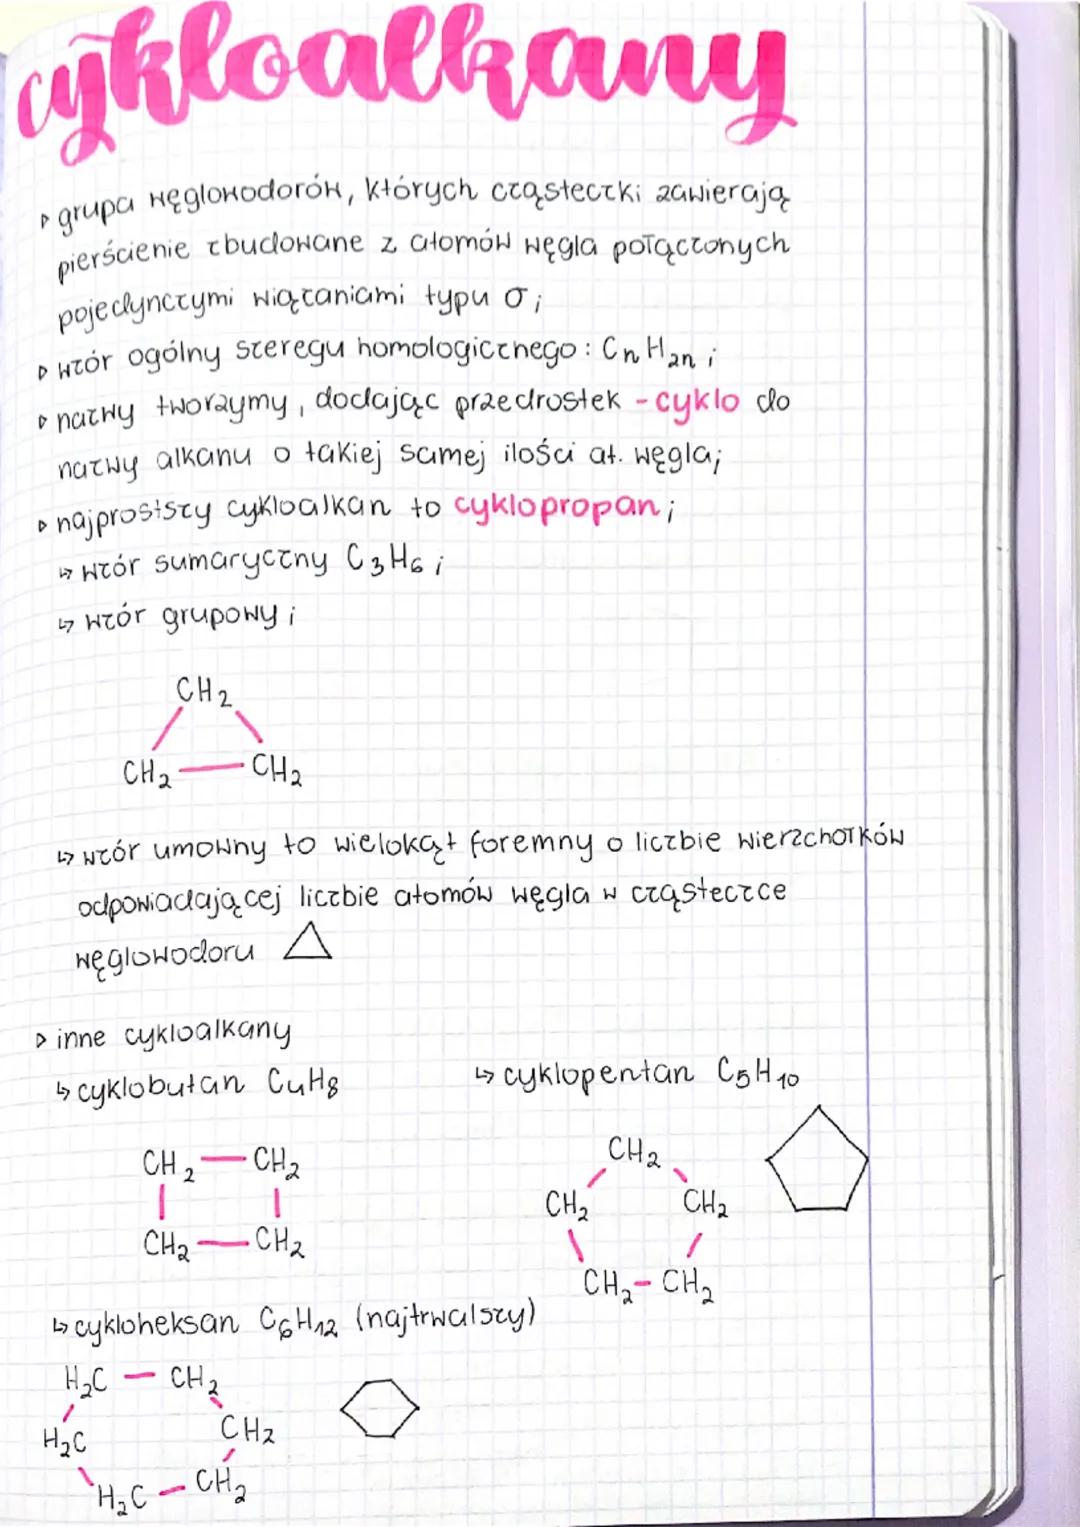 cykloalkany
▹ grupa węglowodorów, których cząsteczki zawierają
pierścienie zbudowane z atomów węgla połączonych
pojedynczymi wiązaniami typu σ;
▹ wzór ogólny szeregu homologicznego: CnH2n;
▹ nazwy tworzymy, dodając przedrostek -cyklo do
nazwy alkanu o takiej samej ilości at. węgla;
▹ najprostszy cykloalkan to cyklopropan;
↳ wzór sumaryczny C3H6;
↳ wzór grupowy;
CH2
CH2 — CH2
↳ wzór umowny to wielokąt foremny o liczbie wierzchołków
odpowiadającej liczbie atomów węgla w cząsteczce
węglowodoru
▹ inne cykloalkany
↳ cyklobutan C4H8
CH2 — CH2
CH2 — CH2
↳ cyklopentan C5H10
CH2
CH2 CH2
CH2 — CH2
↳ cykloheksan C6H12 (najtrwalszy)
H2C — CH2
H2C CH2
H2C — CH2